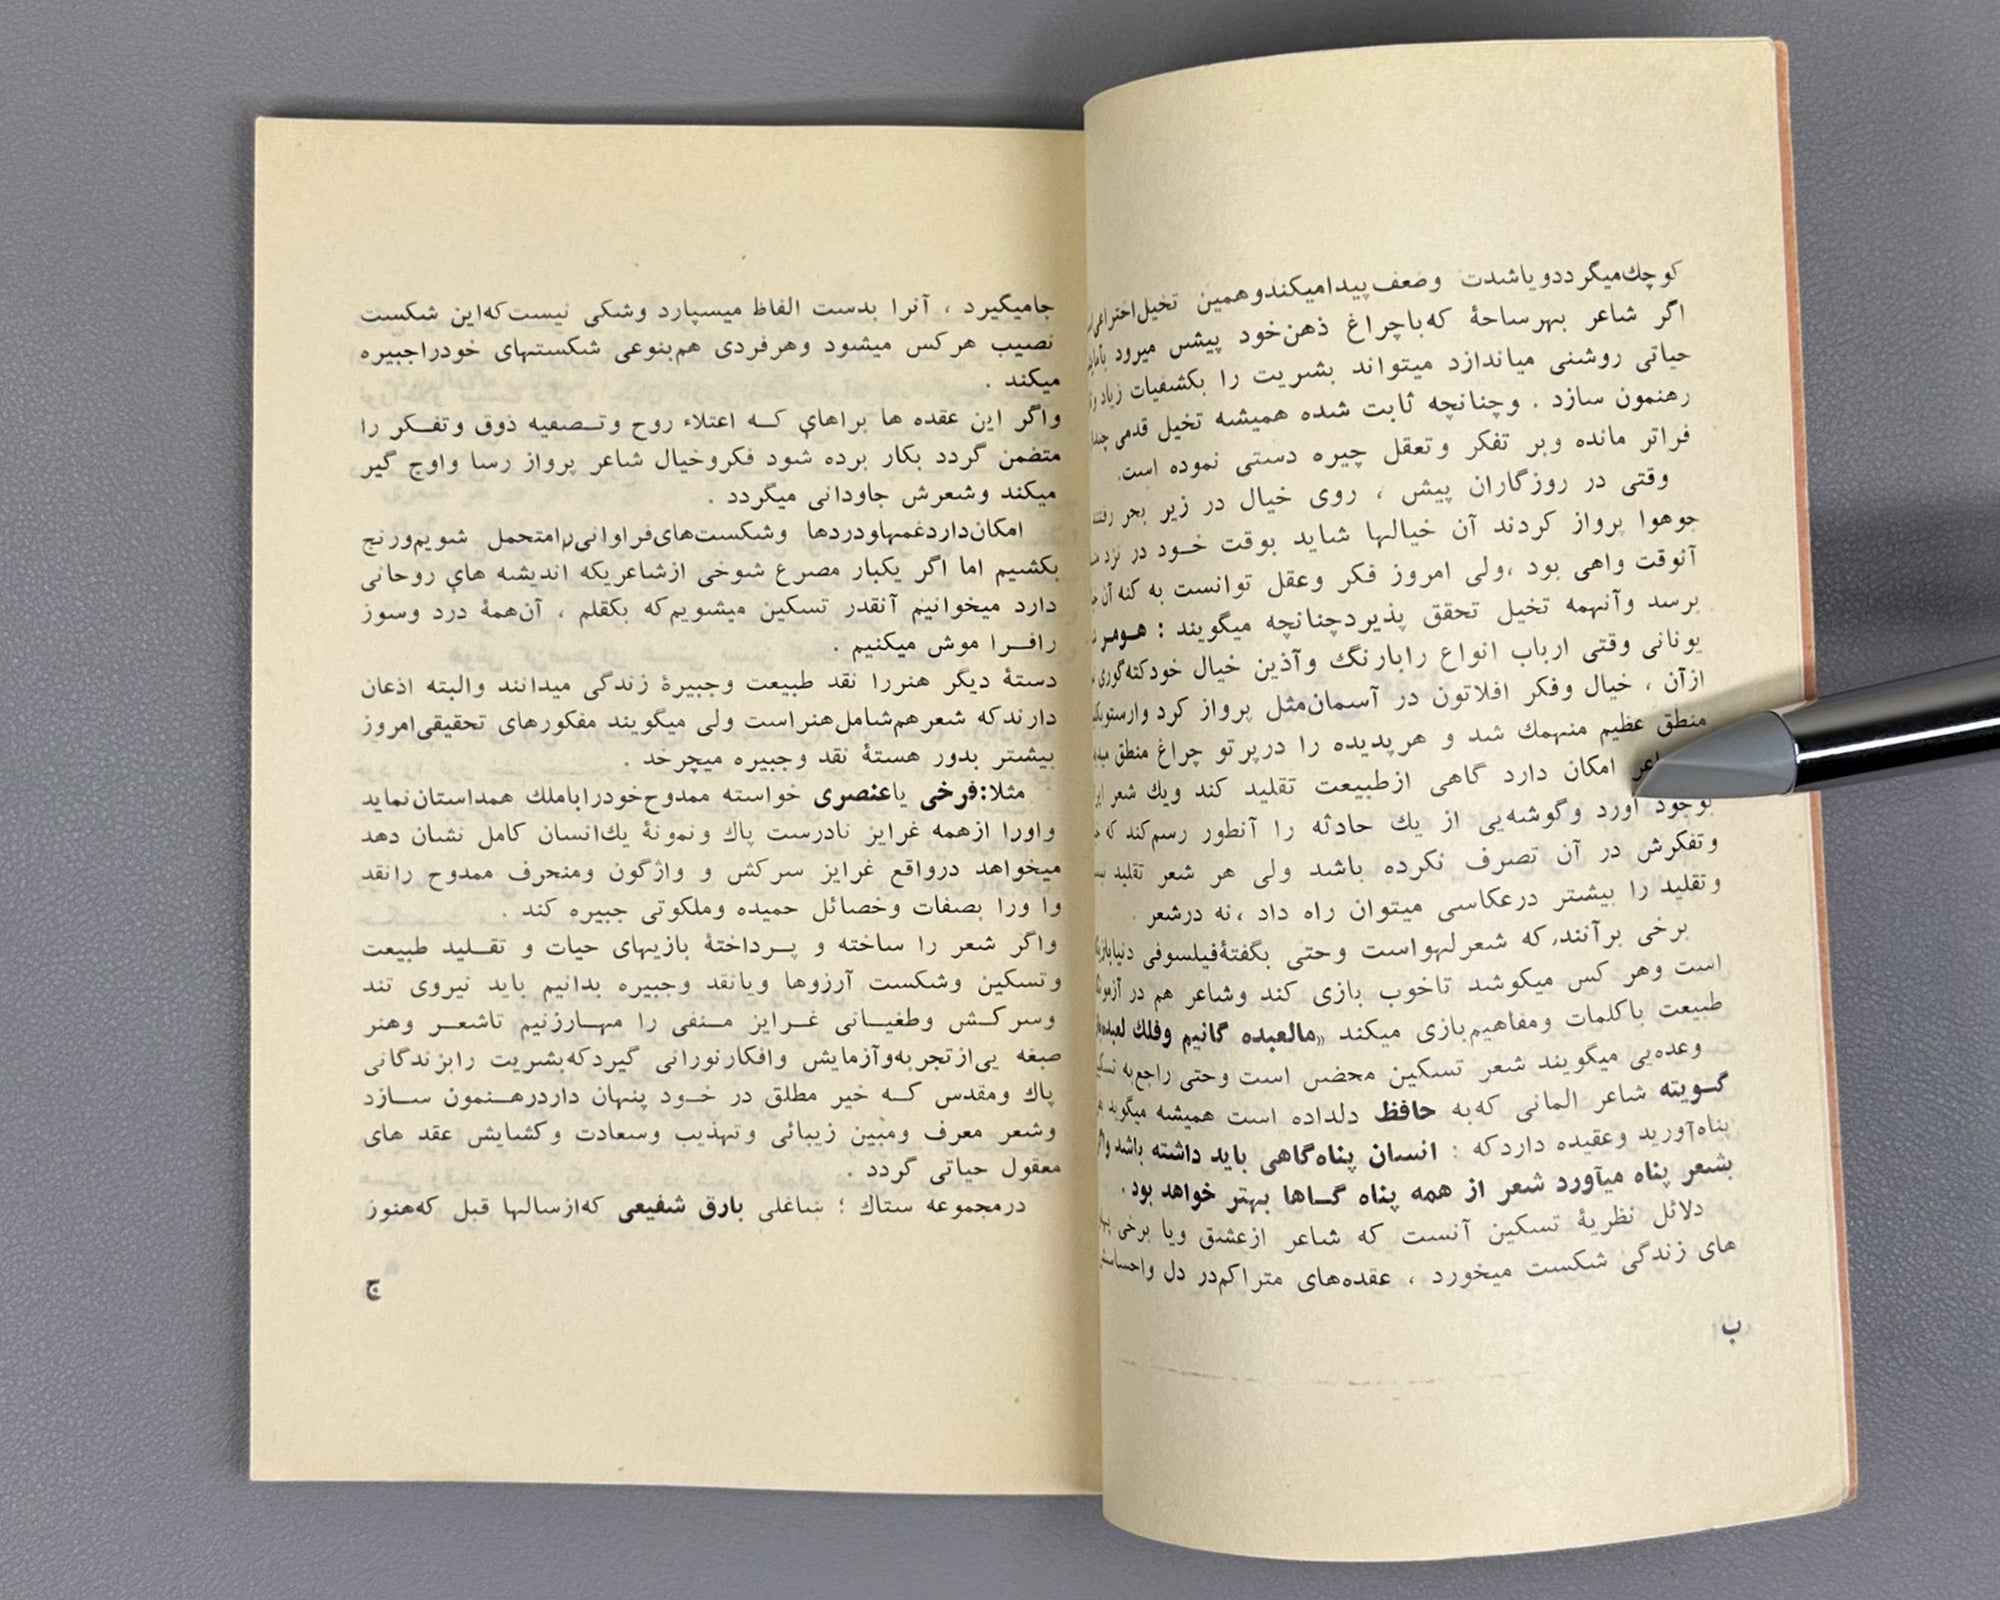 کوچك‌میگرددویاشدت وضعف‌پیدامیکندوهمین تخیل‌اختراعی
اگر شاعر بهرساحهٔ که‌باچراغ ذهن‌خود پیش میرود
حیاتی روشنی میاندازد میتواند بشریت را بکشفیات زیاد
رهنمون سازد . وچنانچه ثابت شده همیشه تخیل قدمی
فراتر مانده وبر تفکر وتعقل چیره دستی نموده است.
وقتی در روزگاران پیش ، روی خیال در زیر بحر رفتند
جوهوا پرواز کردند آن خیالها شاید بوقت خـود در نزد
آنوقت واهی بود ،ولی امروز فکر وعقل توانست به کنه آن
برسد وآنهمه تخیل تحقق پذیردچنانچه میگویند : هـومر
یونانی وقتی ارباب انواع رابارنگ وآذین خیال خودکته‌گوری
ازآن ، خیال وفکر افلاتون در آسمان‌مثل پرواز کرد وارستو
منطق عظیم منهمك شد و هرپدیده را درپرتو چراغ منطق
امکان دارد گاهی ازطبیعت تقلید کند ویك شعر
بوجود آورد وگوشه‌یی از یك حادثه را آنطور رسم‌کند که
وتفکرش در آن تصرف نکرده باشد ولی هر شعر تقلید
وتقلید را بیشتر درعکاسی میتوان راه داد ،نه درشعر .
برخی برآنند، که شعرلهواست وحتی بگفتهٔ‌فیلسوفی
است وهر کس میکوشد تاخوب بازی کند وشاعر هم در
طبیعت باکلمات ومفاهیم‌بازی میکند «مالعبده گانیم وفلك
وعده‌یی میگویند شعر تسکین محض است وحتی راجع‌به
گـویته شاعر المانی که‌به حافظ دلداده است همیشه میگوید
پناه‌آورید وعقیده داردکه : انسان پناه‌گاهی باید داشته باشد
بشعر پناه میآورد شعر از همه پناه گـاها بهتر خواهد بود .
دلائل نظریهٔ تسکین آنست که شاعر ازعشق ویا برخی
های زندگی شکست میخورد ، عقده‌های متراکم‌در دل
ب
جامیگیرد ، آنرا بدست الفاظ میسپارد وشکی نیست‌که‌این شکست
نصیب هرکس میشود وهرفردی هم‌بنوعی شکستهای خودراجبیره
میکند .
واگر این عقده ها براهاي کـه اعتلاء روح وتـصفیه ذوق وتفـکر را
متضمن گردد بکار برده شود فکروخیال شاعر پرواز رسا واوج گیر
میکند وشعرش جاودانی میگردد .
امکان‌داردغمهاودردها وشکست‌های‌فراوانی‌رامتحمل شویم‌ورنج
بکشیم اما اگر یکبار مصرع شوخی ازشاعریکه اندیشه هاي روحانی
دارد میخوانیم آنقدر تسکین میشویم‌که بکقلم ، آن‌همهٔ درد وسوز
رافـرا موش میکنیم .
دستهٔ دیگر هنررا نقد طبیعت وجبیرهٔ زندگی میدانند والبته اذعان
دارندکه شعرهم‌شامل‌هنراست ولی میگویند مفکورهای تحقیقی‌امروز
بیشتر بدور هستهٔ نقد وجبیره میچرخد .
مثلا:فرخی یاعنصری خواسته ممدوح‌خودراباملك همداستان‌نماید
واورا ازهمه غرایز نادرست پاك ونمونهٔ یك‌انسان کامل نشان دهد
میخواهد درواقع غرایز سرکش و واژگون ومنحرف ممدوح رانقد
وا ورا بصفات وخصائل حمیده وملکوتی جبیره کند .
واگر شعر را ساخته و پـرداختهٔ بازیهای حیات و تقـلید طبیعت
وتسکین وشکست آرزوها ویانقد وجبیره بدانیم باید نیروی تند
وسرکـش وطغیـانی غـرایز مـنفی را مهـارزنیم تاشعـر وهنر
صبغه یی‌ازتجربه‌وآزمایش وافکارنورانی گیردکه‌بشریت رابزندگانی
پاك ومقدس کـه خیر مطلق در خـود پنهان داردرهـنمون سـازد
وشعر معرف ومبین زیبائی وتهذیب وسعادت وکشایش عقد های
معقول حیاتی گردد .
درمجموعه ستاك ؛ ښاغلی بارق شفیعی که‌ازسالها قبل که‌هنوز
ج